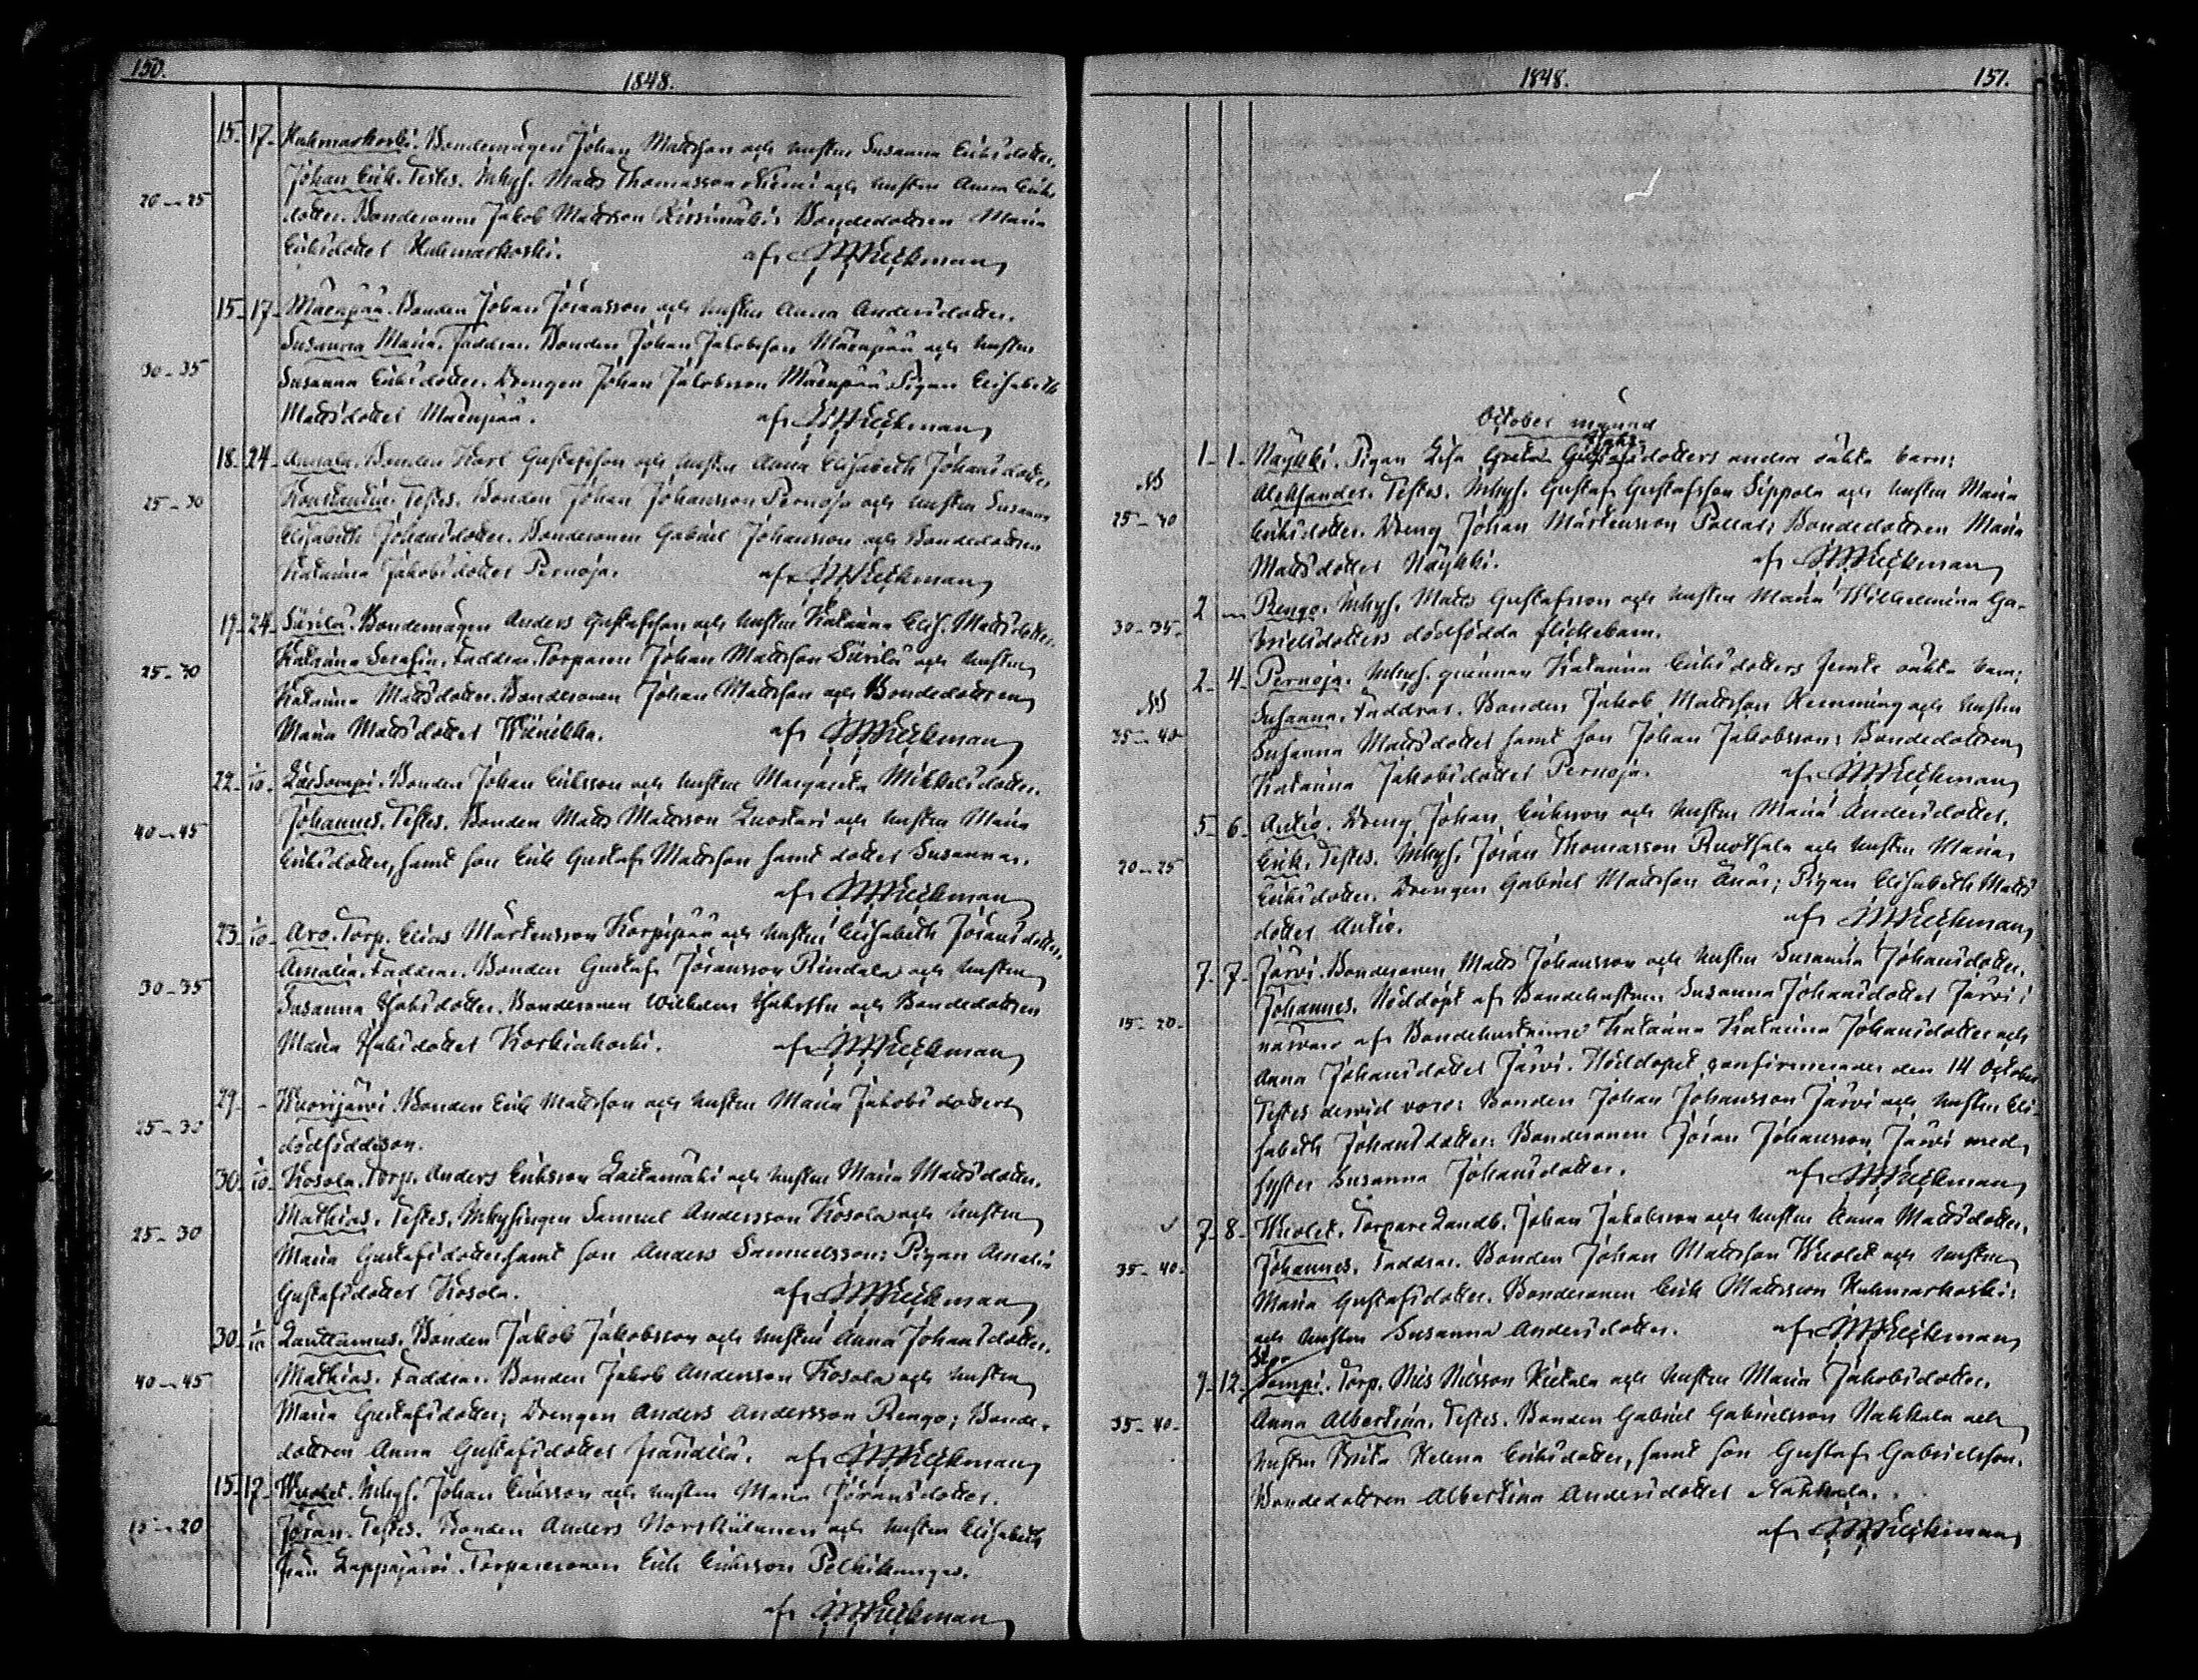 150.
1848.
15. 17. Kuhmarkoski. Bondemågen Johan Mattsson och hustru Susanna Eriksdotter.
Johan Erik. Testes. Inhys. Matts Thomasson Niemi och hustru Anna Eriks
20-25
dotter. Bondesonen Jakob Mattsson Bondedottren Maria
Eriksdotter Kuhmarkoski. af
15. 17. Mäenpää. Bonden Johan Jöransson och hustru Anna Andersdotter.
Susanna Maria. Faddrar. Bonden Johan Jakobsson Mäenpää och hustru
30-35
Susanna Eriksdotter. Drengen Johan Jakobsson Mäenpää. Pigan Elisabeth
Mattsdotter Mäenpää. af
18. 24. Annala. Bonden Karl Gustafsson och hustru Anna Elisabeth Johansdotter
25-30
Konstantin. Testes. Bonden Johan Johansson Pernoja och hustru Susanna
Elisabeth Johansdotter. Bondesonen Gabriel Johansson och Bondedottren
Katarina Jakobsdotter Pernoja. af
19. 24. Bondemågen Anders Gustafsson och hustru Katarina Elis. Mattsdotter.
Katarina Serafin. Faddrar. Torparen Johan Mattsson och hustru
25-30
Katarina Mattsdotter. Bondesonen Johan Mattsson och Bondedottren
Maria Mattsdotter Wiinikka. af
22. 1/10. Bonden Johan Eriksson och hustru Margareta Mikkelsdotter.
Johannes. Testes. Bonden Matts Mattsson Luostari och hustru Maria
40-45
Eriksdotter, samt son Erik Gustaf Mattsson samt dotter Susanna.
af
23. 1/10. Aro. Torp. Elias Mårtensson Korpipää och hustru Elisabeth Jöransdotter.
Amalia. Faddrar. Bonden Gustaf Jöransson Rindala och hustru
30-35
Susanna Isaksdotter. Bondesonen Wilhelm Isaksson och Bondedottren
Maria Isaksdotter Koskiakoski. af
29. - Wuorijärvi. Bonden Erik Mattsson och hustru Maria Jakobsdotters
25-30
dödfödde son.
30. 1/10. Kosola. Torp. Anders Eriksson och hustru Maria Mattsdotter.
Mathias. Testes. Inhysingen Samuel Andersson Kosola och hustru
25-30
Maria Gustafsdotter samt son Anders Samuelsson; Pigan Amalia
Gustafsdotter Kosola. af
30. 1/10. Lauttamus. Bonden Jakob Jakobsson och hustru Anna Johansdotter.
Mathias. Faddrar. Bonden Jakob Andersson Kosola och hustru
40-45
Maria Gustafsdotter; Drengen Anders Andersson Rengo; Bonde-
dottren Anna Gustafsdotter af
15. 17. Wuolet. Inhys. Johan Eriksson och hustru Maria Jöransdotter.
15-20
Jöran. Testes. Bonden Anders och hustru Elisabeth
från Lappajärvi. Torparesonen Erik Eriksson Pelkikangas.
af
1848.
151.
October månad
1. 1. Näykki. Pigan Lisa dotters andra oäkta barn:
Aleksander. Testes. Inhys. Gustaf Gustafsson Sippola och hustru Maria
25-30
Eriksdotter. Dreng Johan Mårtensson Pollari; Bondedottren Maria
Mattsdotter Näykki. af
2 - Rengo. Inhys. Matts Gustafsson och hustru Maria Wilhelmina Ga-
30-35.
brielsdotters dödfödda flickebarn.
2. 4. Pernoja. Inhys. qvinnan Katarina Eriksdotters femte oäkta barn;
Susanna. Faddrar. Bonden Jakob Mattsson Hemming och hustru
35-40
Susanna Mattsdotter samt son Johan Jakobsson; Bondedottren
Katarina Jakobsdotter Pernoja. af
5. 6. Antio. Dreng Johan Eriksson och hustru Maria Andersdotter.
20-25
Erik. Testes. Inhys. Jöran Thomasson Ruotsala och hustru Maria
Eriksdotter. Drengen Gabriel Mattsson Pigan Elisabeth Matts
dotter Antio. af
7. 7. Järvi. Bondesonen Matts Johansson och hustru Susanna Johansdotter.
Johannes. Nöddöpt af Bondehustrun Susanna Johansdotter Järvi i
15-20.
närvaro af Bondehustrurne Katarina Katarina Johansdotter och
Anna Johansdotter Järvi. Nöddopet confirmerades den 14 October
Testes dervid voro: Bonden Johan Johansson Järvi och hustru Eli-
sabeth Johansdotter: Bondesonen Jöran Johansson Järvi med
syster Susanna Johansdotter. af
7. 8. Wuolet. Torpare Landb. Johan Jakobsson och hustru Anna Mattsdotter.
35-40.
Johannes. Faddrar. Bonden Johan Mattsson Wuolet och hustru
Maria Gustafsdotter. Bondesonen Erik Mattsson Kuhmarkoski
och hustru Susanna Andersdotter. af
9. 12. Torp. Nils Nilsson Hietala och hustru Maria Jakobsdotter.
35-40.
Anna Albertina. Testes. Bonden Gabriel Gabrielsson Nahkala och
hustru Brita Helena Eriksdotter, samt son Gustaf Gabrielsson.
Bondedottren Albertina Andersdotter Nahkala.
af